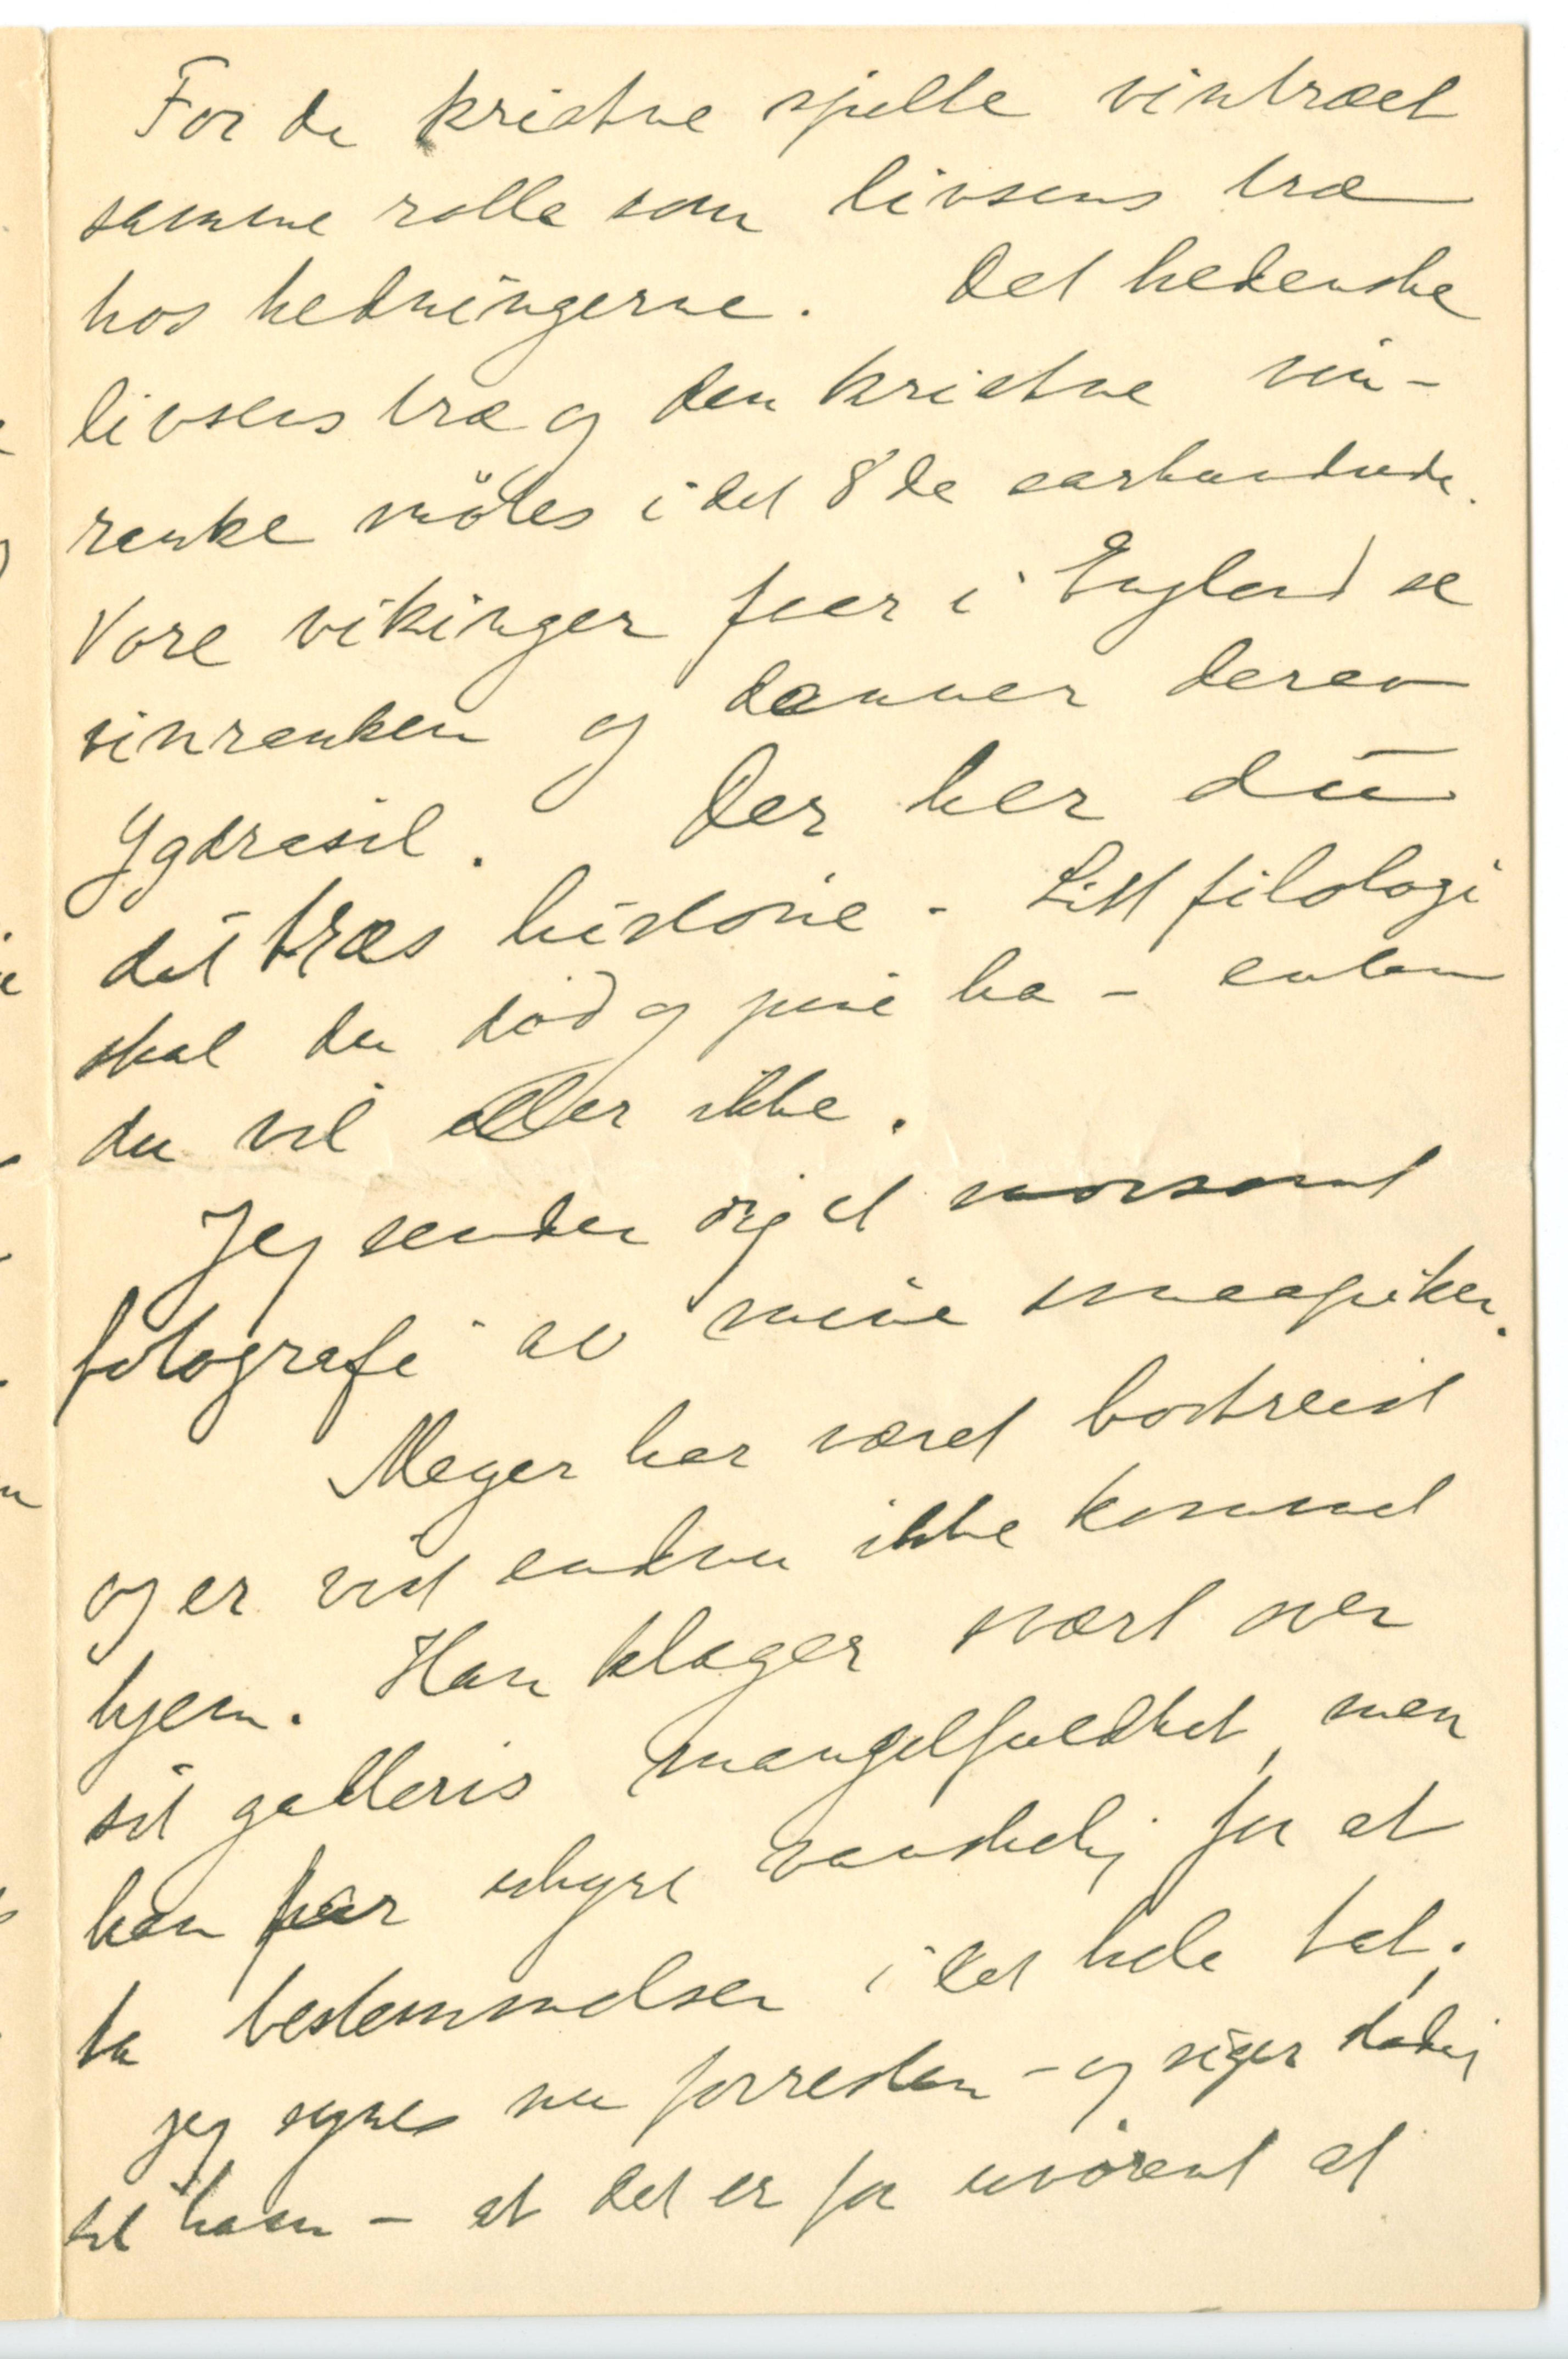 For de kristne spille vintræet
samme rolle som livsens træ
hos hedningerne. Det hedenske
livsens træ og den kristne vin-
ranke mötes i det 8'de aarhundrede.
Vore vikinger faar i England se
vinranken og danner derav
Ygdrasil. Der har du
dit træs historie. Litt filologi
skal du död og pine ha – enten
du vil eller ikke.
Jeg sender dig et morsomt
fotografi av mine smaapiker.
Meyer har været bortreist
og er vist endnu ikke kommet
hjem. Han klager svært over
sit galleris mangelfuldhet, men
han har uhyre vanskelig for at
ta bestemmelser i det hele tat.
jeg synes nu forresten – og siger stadig
til ham – at det er for uvörent at